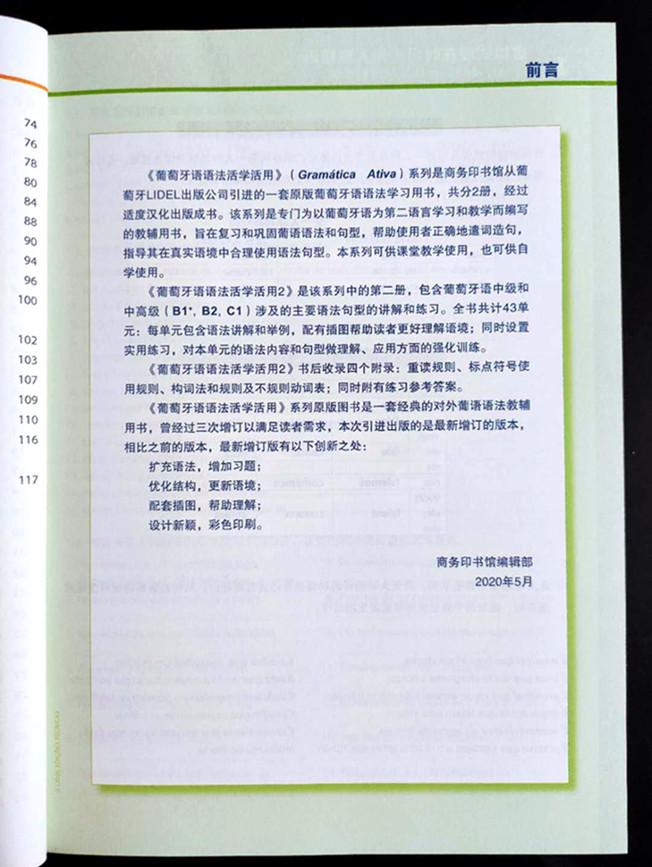 74
76
78
80
84
88
90
94
96
100
102
103
107
109
110
116
117
前言
《葡萄牙语语法活学活用》（Gramática Ativa）系列是商务印书馆从葡
萄牙LIDEL出版公司引进的一套原版葡萄牙语语法学习用书，共分2册，经过
适度汉化出版成书。该系列是专门为以葡萄牙语为第二语言学习和教学而编写
的教辅用书，旨在复习和巩固葡语语法和句型，帮助使用者正确地遣词造句，
指导其在真实语境中合理使用语法句型。本系列可供课堂教学使用，也可供自
学使用。
《葡萄牙语语法活学活用2》是该系列中的第二册，包含葡萄牙语中级和
中高级（B1+, B2, C1）涉及的主要语法句型的讲解和练习。全书共计43单
元：每单元包含语法讲解和举例，配有插图帮助读者更好理解语境；同时设置
实用练习，对本单元的语法内容和句型做理解、应用方面的强化训练。
《葡萄牙语语法活学活用2》书后收录四个附录：重读规则、标点符号使
用规则、构词法和规则及不规则动词表；同时附有练习参考答案。
《葡萄牙语语法活学活用》系列原版图书是一套经典的对外葡语语法教辅
用书，曾经过三次增订以满足读者需求，本次引进出版的是最新增订的版本，
相比之前的版本，最新增订版有以下创新之处：
扩充语法，增加习题；
优化结构，更新语境；
配套插图，帮助理解；
设计新颖，彩色印刷。
商务印书馆编辑部
2020年5月